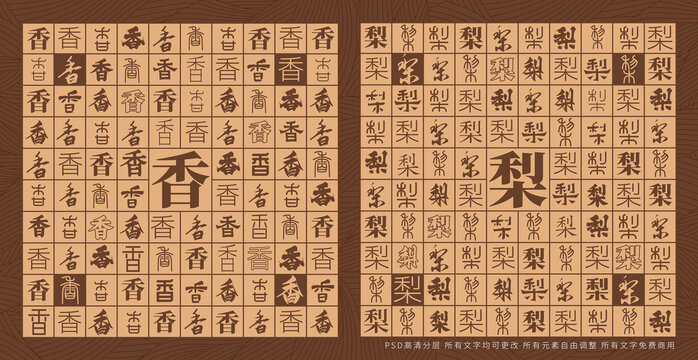 香香香香香香香香香香
香香香香香香香香香香
香香香香香香香香香香
香香香香香香香香香香
香香香香香香香香香
香香香香香香香香
香香香香香香香香香香
香香香香香香香香香香
香香香香香香香香香香
香香香香香香香香香香
梨梨梨梨梨梨梨梨梨梨
梨梨梨梨梨梨梨梨梨梨
梨梨梨梨梨梨梨梨梨梨
梨梨梨梨梨梨梨梨梨梨
梨梨梨梨梨梨梨梨梨
梨梨梨梨梨梨梨梨
梨梨梨梨梨梨梨梨梨梨
梨梨梨梨梨梨梨梨梨梨
梨梨梨梨梨梨梨梨梨梨
梨梨梨梨梨梨梨梨梨梨
PSD高清分层 所有文字均可更改 所有元素自由调整 所有文字免费商用